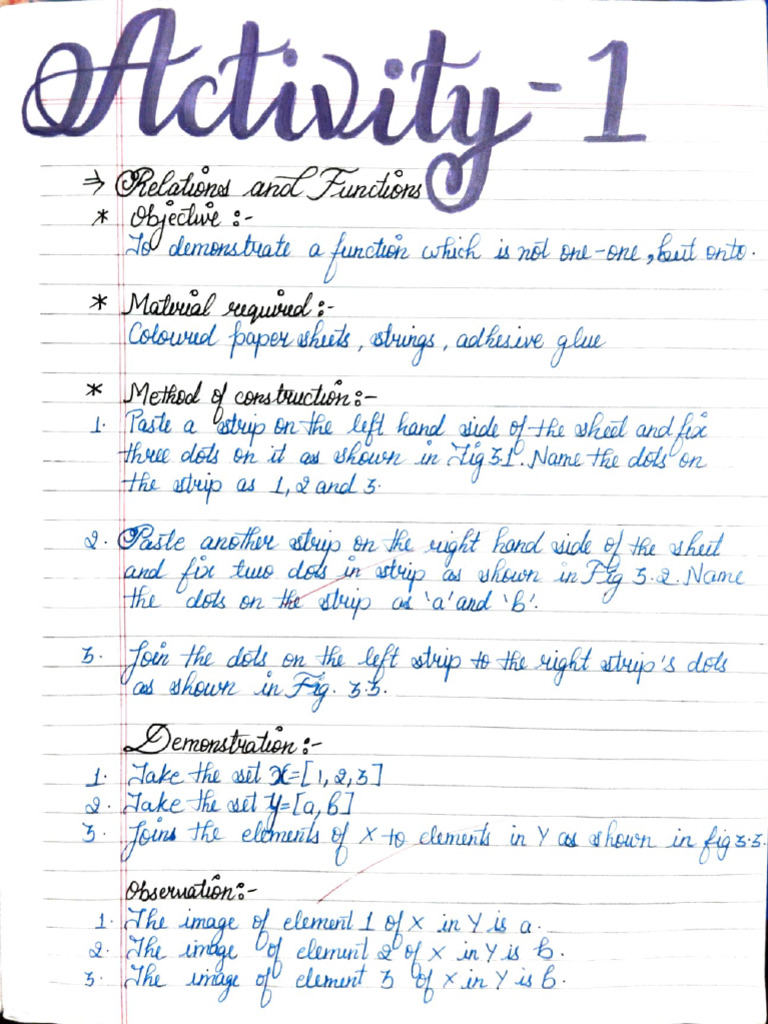 Activity-1
⇒ Relations and Functions
* Objective :-
To demonstrate a function which is not one-one, but onto.
* Material required :-
Coloured paper sheets, strings, adhesive glue
* Method of construction:-
1. Paste a strip on the left hand side of the sheet and fix
three dots on it as shown in Fig 3.1. Name the dots on
the strip as 1, 2 and 3.
2. Paste another strip on the right hand side of the sheet
and fix two dots in strip as shown in Fig 3.2. Name
the dots on the strip as 'a' and 'b'.
3. Join the dots on the left strip to the right strip's dots
as shown in Fig. 3.3.
Demonstration :-
1. Take the set X=[1,2,3]
2. Take the set Y=[a,b]
3. Joins the elements of X to elements in Y as shown in fig 3.3.
Observation:-
1. The image of element 1 of X in Y is a.
2. The image of element 2 of X in Y is b.
3. The image of element 3 of X in Y is b.